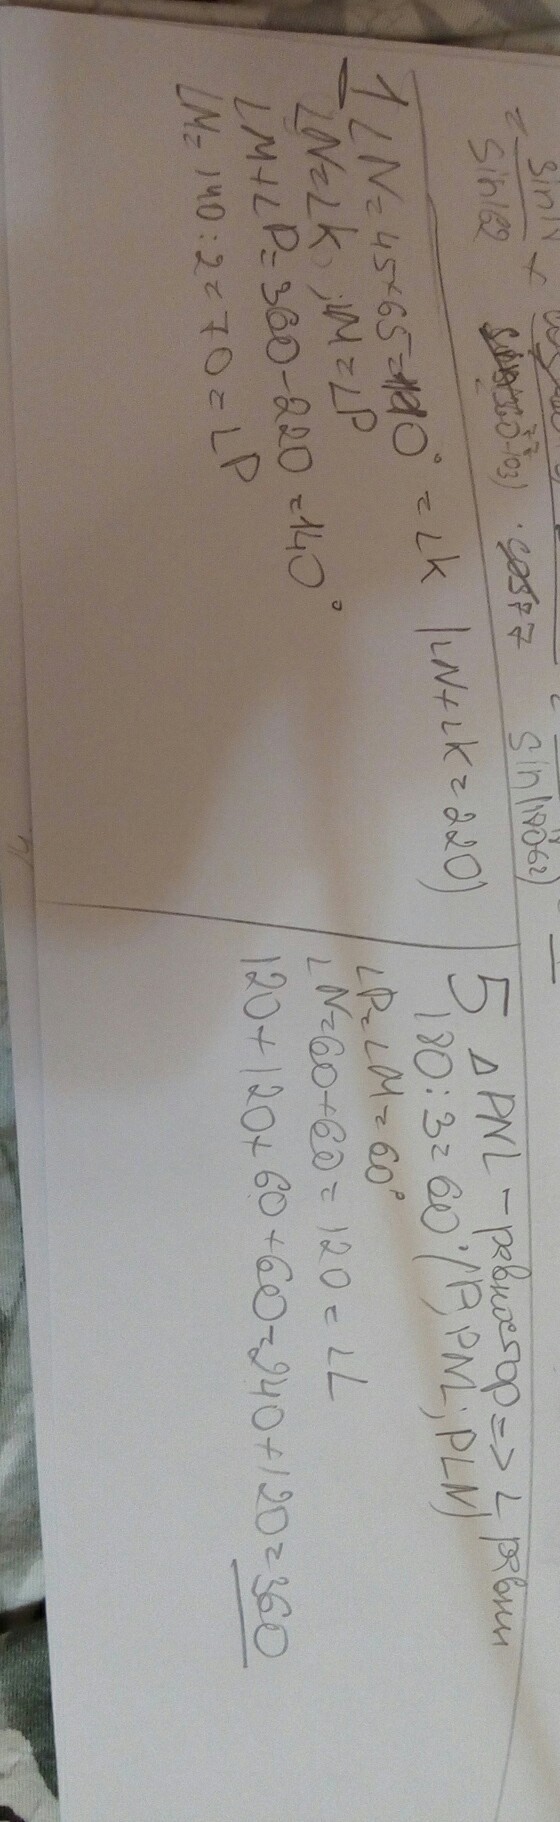 = sin1
sin162
· cos77
sin(180-62)
1 ∠N=45+65=110° =∠K (∠N+∠K=220)
∠N=∠K, ∠M=∠P
∠M+∠P=360-220=140°
∠M=140:2=70=∠P
5 △PNL - равностор => ∠ равны
180:3=60° (P, PNL, PLN)
∠P=∠M=60°
∠N=60+60=120=∠L
120+120+60+60=240+120=360